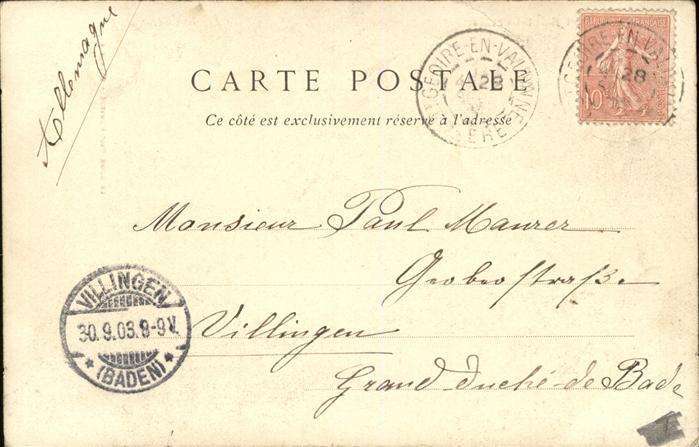 Allemagne
CARTE POSTALE
Ce côté est exclusivement réservé à l'adresse
ST GEOIRE-EN-VALDAINE
28
ISÈRE
RÉPUBLIQUE FRANÇAISE
10
GEOIRE-EN-VAL
28
Monsieur Paul Maurer
Villingen
Grand-duché-de Bade
VILLINGEN
30.9.03.8-9V.
*(BADEN)*